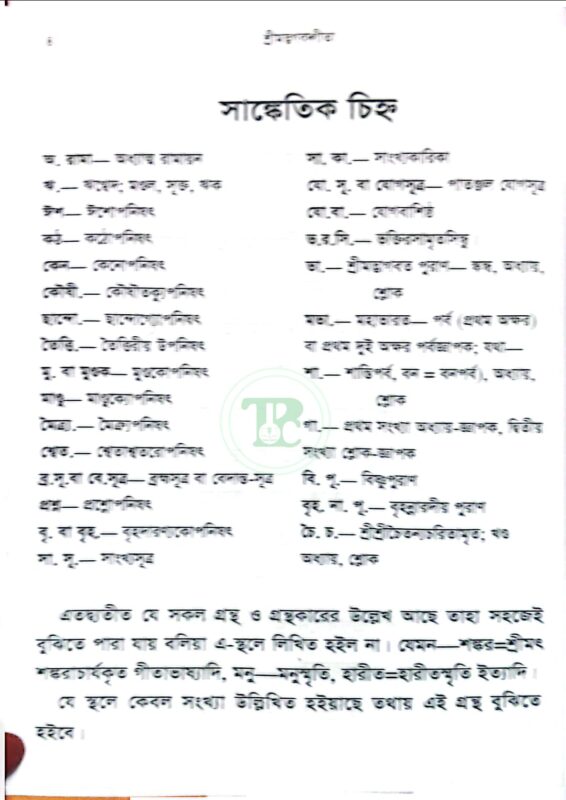 ৪
শ্রীমদ্ভগবদ্গীতা
সাঙ্কেতিক চিহ্ন
অ. রামা— অধ্যাত্ম রামায়ন
ঋ.— ঋগ্বেদ; মণ্ডল, সূক্ত, ঋক
ঈশ— ঈশোপনিষৎ
কঠ— কঠোপনিষৎ
কেন— কেনোপনিষৎ
কৌষী.— কৌষীতক্যুপনিষৎ
ছান্দো.— ছান্দোগ্যোপনিষৎ
তৈত্তি.— তৈত্তিরীয় উপনিষৎ
মু. বা মুণ্ডক— মুণ্ডকোপনিষৎ
মাণ্ডু— মাণ্ডুক্যোপনিষৎ
মৈত্রা.— মৈত্র্যুপনিষৎ
শ্বেত.— শ্বেতাশ্বতরোপনিষৎ
ব্র.সূ.বা বে.সূত্র— ব্রহ্মসূত্র বা বেদান্ত-সূত্র
প্রশ্ন— প্রশ্নোপনিষৎ
বৃ. বা বৃহ.— বৃহদারণ্যকোপনিষৎ
সা. সূ.— সাংখ্যসূত্র
সা. কা.— সাংখ্যকারিকা
যো. সূ. বা যোগসূত্র— পাতঞ্জল যোগসূত্র
যো.বা.— যোগবাশিষ্ঠ
ভ.র.সি.— ভক্তিরসামৃতসিন্ধু
ভা.— শ্রীমদ্ভাগবত পুরাণ— স্কন্ধ, অধ্যায়,
শ্লোক
মভা.— মহাভারত— পর্ব (প্রথম অক্ষর)
বা প্রথম দুই অক্ষর পর্বজ্ঞাপক; যথা—
শা.— শান্তিপর্ব, বন = বনপর্ব), অধ্যায়,
শ্লোক
গী.— প্রথম সংখ্যা অধ্যায়-জ্ঞাপক, দ্বিতীয়
সংখ্যা শ্লোক-জ্ঞাপক
বি. পু.— বিষ্ণুপুরাণ
বৃহ. না. পু.— বৃহন্নারদীয় পুরাণ
চৈ. চ.— শ্রীশ্রীচৈতন্যচরিতামৃত; খণ্ড
অধ্যায়, শ্লোক
TBC
এতদ্ব্যতীত যে সকল গ্রন্থ ও গ্রন্থকারের উল্লেখ আছে তাহা সহজেই
বুঝিতে পারা যায় বলিয়া এ-স্থলে লিখিত হইল না। যেমন—শঙ্কর=শ্রীমৎ
শঙ্করাচার্যকৃত গীতাভাষ্যাদি, মনু—মনুস্মৃতি, হারীত=হারীতস্মৃতি ইত্যাদি।
যে স্থলে কেবল সংখ্যা উল্লিখিত হইয়াছে তথায় এই গ্রন্থ বুঝিতে
হইবে।